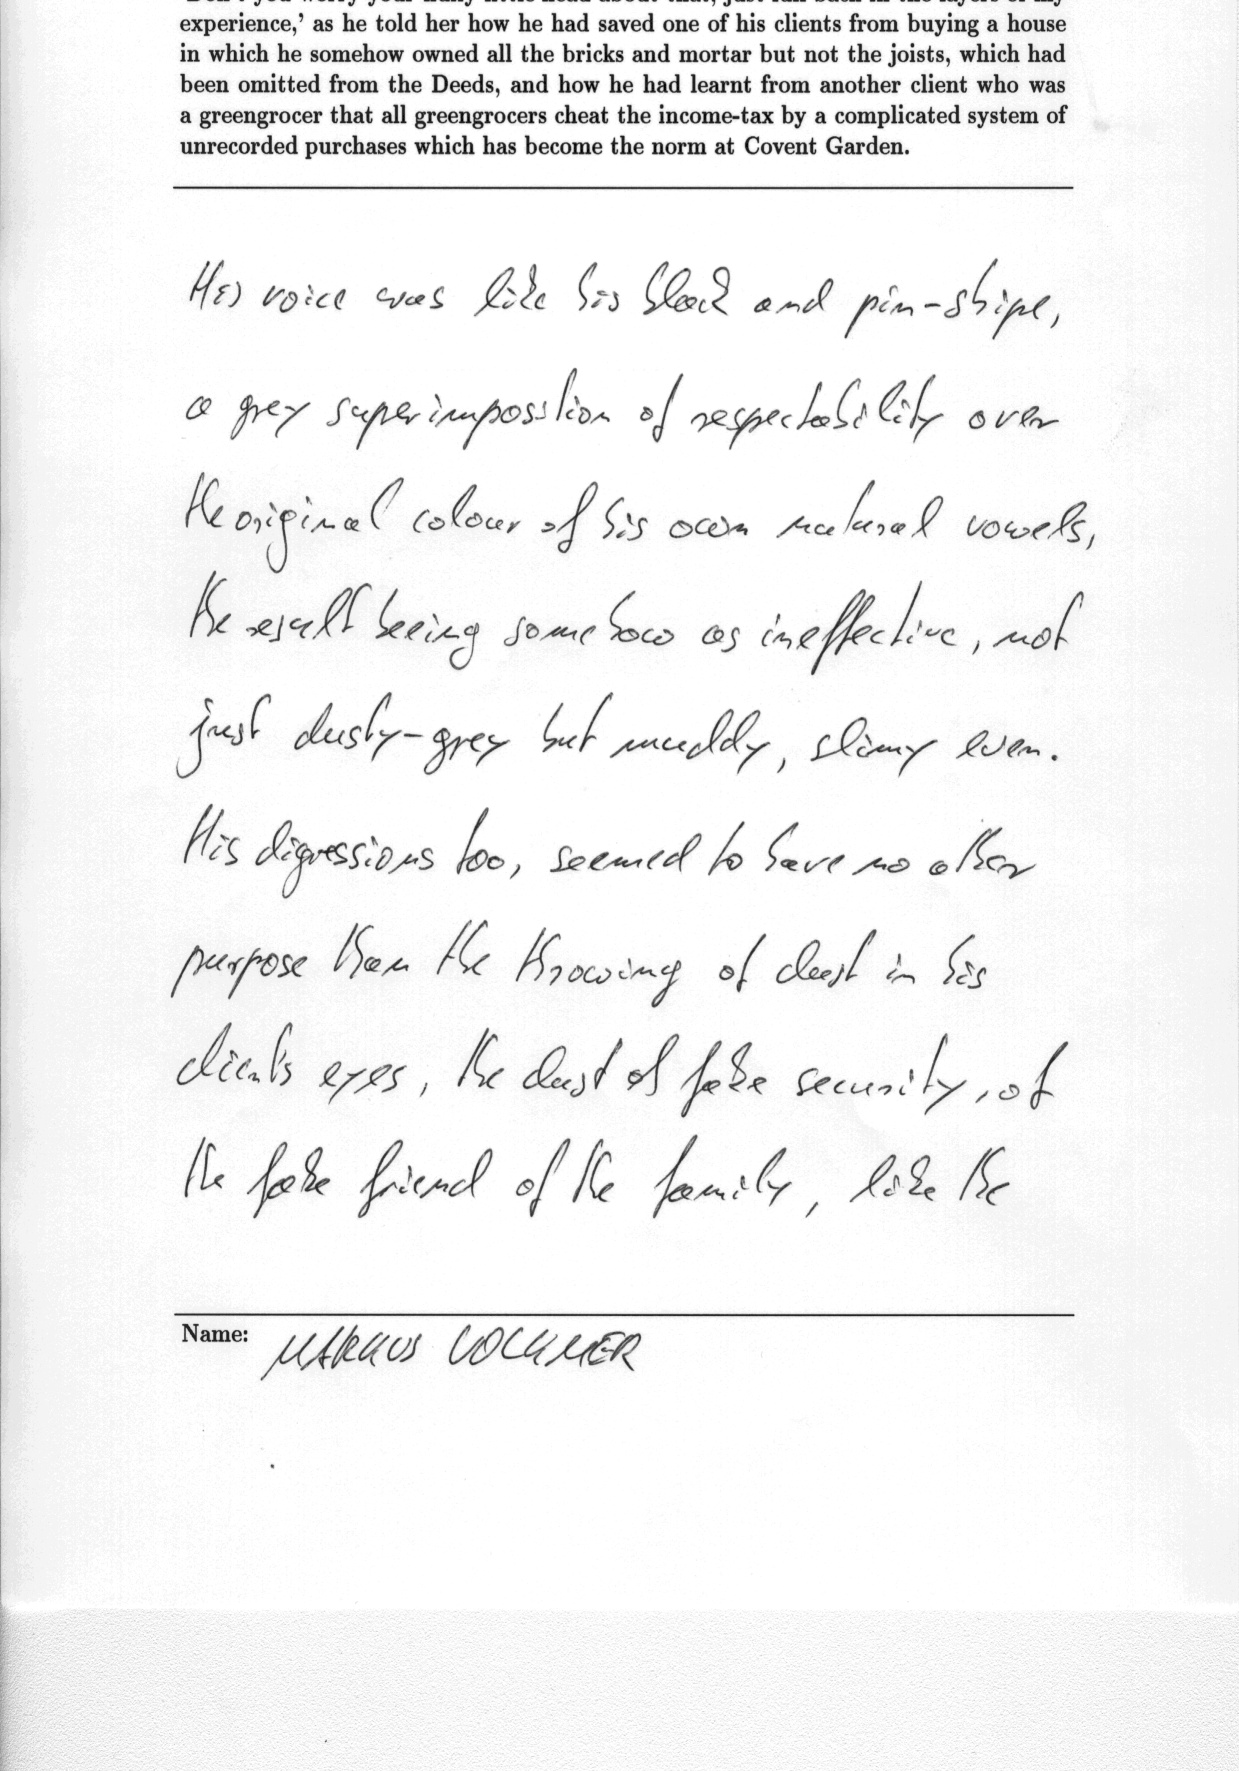 experience,’ as he told her how he had saved one of his clients from buying a house
in which he somehow owned all the bricks and mortar but not the joists, which had
been omitted from the Deeds, and how he had learnt from another client who was
a greengrocer that all greengrocers cheat the income-tax by a complicated system of
unrecorded purchases which has become the norm at Covent Garden.
His voice was like his black and pin-stripe,
a grey superimposition of respectability over
the original colour of his own natural vowels,
the result being somehow as ineffective, not
just dusty-grey but muddy, slimy even.
His digressions too, seemed to have no other
purpose than the throwing of dust in his
client's eyes, the dust of fake security, of
the fake friend of the family, like the
Name: MARKUS